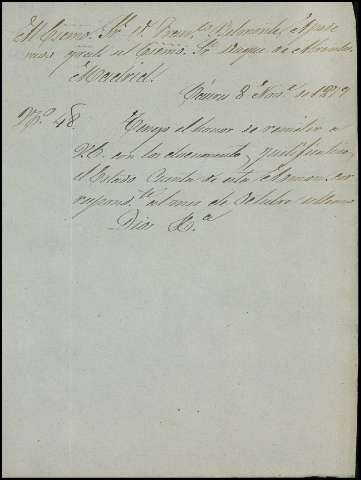 Al Excmo. Sr. Dn. Franco. Belmonte, Apode
rado gral. del Excmo. Sr. Duque de
Madrid.
8 Nove. de 1879
No. 48. Tengo el honor de remitir a
V.E. con los documentos justificativos
el Estado Cuenta de esta Admon. cor
respondte. al mes de Octubre ultimo
Dios &a